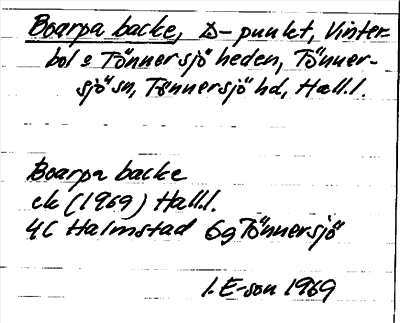 Boarpa backe, D-punkt, Vinter-
bol o Tönnersjö heden, Tönner-
sjö sn, Tönnersjö hd, Hall.
Boarpa backe
ek (1969) Hall.
4C Halmstad 6g Tönnersjö
I. E-son 1969